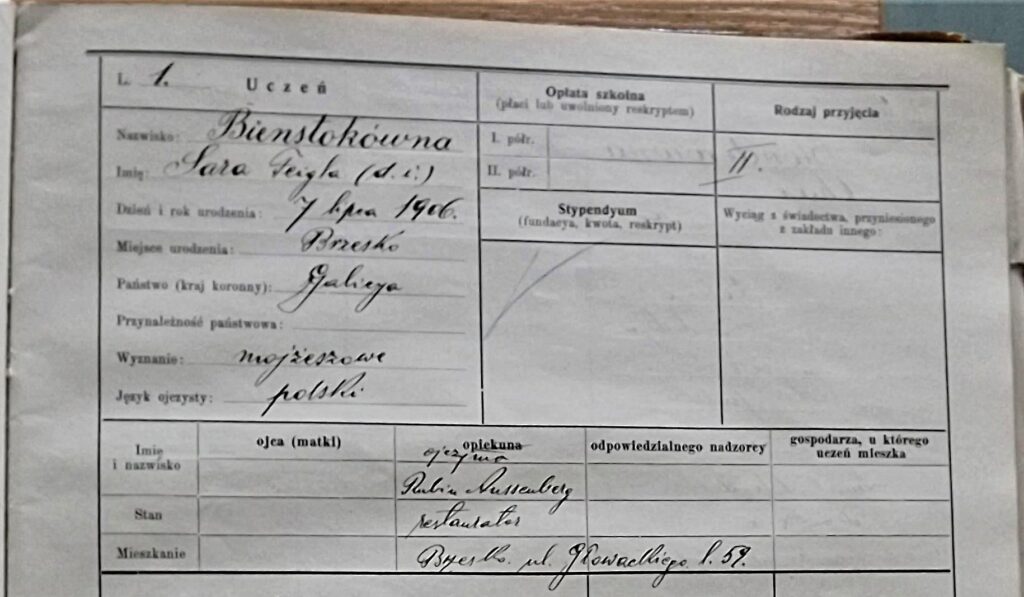 L. 1. Uczeń
Nazwisko: Bienstokówna
Imię: Sara Feigla (d. i.)
Dzień i rok urodzenia: 7 lipca 1906.
Miejsce urodzenia: Brzesko
Państwo (kraj koronny): Galicya
Przynależność państwowa:
Wyznanie: mojżeszowe
Język ojczysty: polski
Opłata szkolna
(płaci lub uwolniony reskryptem)
I. półr.
II. półr.
Stypendyum
(fundacya, kwota, reskrypt)
Rodzaj przyjęcia
II.
Wyciąg z świadectwa, przyniesionego
z zakładu innego:
Imię
i nazwisko
Stan
Mieszkanie
ojca (matki)
opiekuna
ojczyma
Rubin Nussenberg
restaurator
Brzesko. ul. Głowackiego l. 59.
odpowiedzialnego nadzorcy
gospodarza, u którego
uczeń mieszka